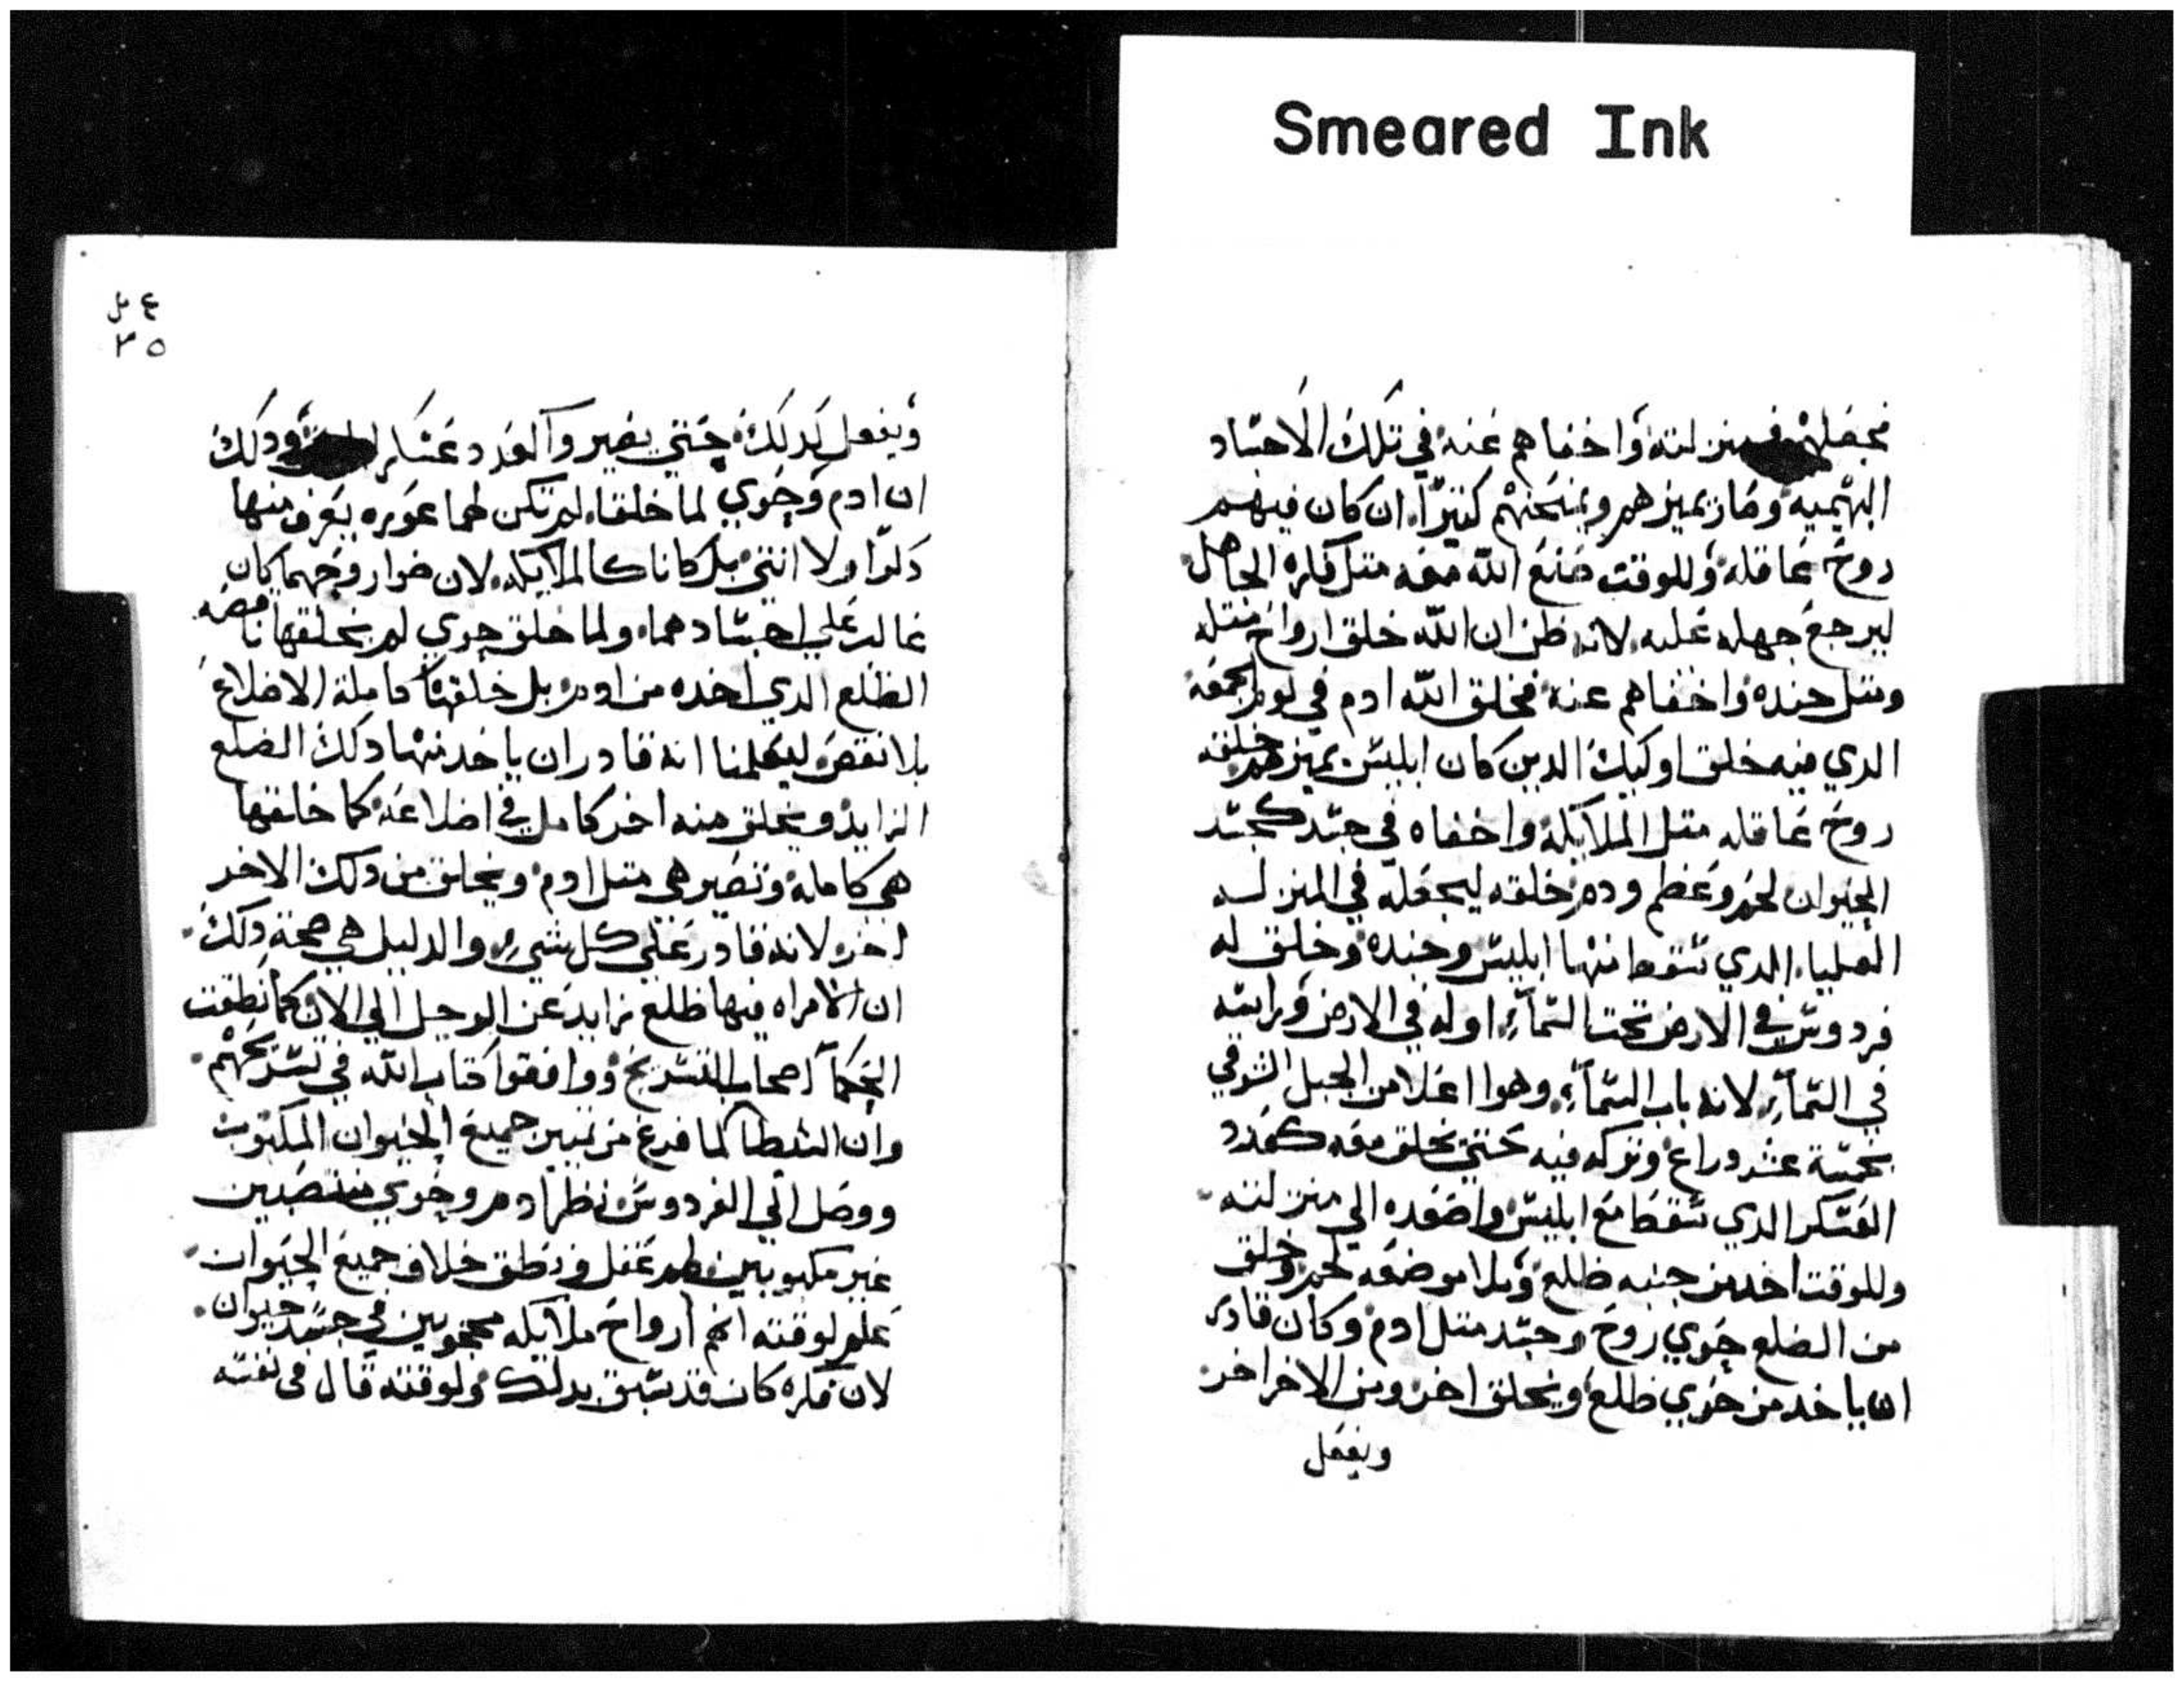 Smeared Ink
منزلته واخفاهم عنه في تلك الاجساد
البهيميه وصار يميزهم ويمتحنهم كتيرا. ان كان فيهم
روح عاقله وللوقت صنع الله معه متل فكره الجاهل
ليرجع جهله عليه. لانه ظن ان الله خلق ارواح متله
ومتل جنده واخفاهم عنه فخلق الله ادم في يوم الجمعه
الدي فيه خلق اوليك الدين كان ابليس يميزهم خلقه
روح عاقله متل الملايكه واخفاه في جسد كجسد
الحيوان لحم وعظم ودم خلقه ليجعله في المنزله
العليا. الدي سقط منها ابليس وجنده وخلق له
فردوس في الارض تحت السمآء. اوله في الارض وراسه
في السمآء. لانه باب السمآء. وهوا اعلا من الجبل الشرقي
بخمسة عشر دراع وتركه فيه حتي يخلق معه كعدد
العسكر الدي سقط مع ابليس واصعده الي منزلته
وللوقت اخد من جنبه ظلع وملا موضعه لحم وخلق
من الضلع حوي روح وجسد متل ادم وكان قادر
ان ياخد من حوي ظلع ويخلق اخر ومن الاخر اخر
ويفعل
٣٥
ويفعل كدلك حتي يصيروا كعدد عساكر ودلك
ان ادم وحوي لما خلقا. لم تكن لهما عوره يعرف منها
دكرا ولا انتي بل كانا كالملايكه. لان ضوا روحهما كان
غالب علي اجسادهما. ولما خلق حوي لم يخلقها ناقصه
الظلع الدي اخده من ادم بل خلقها كاملة الاضلاع
بلا نقص ليعلمنا انه قادر ان ياخد منها دلك الضلع
الزايد ويخلق منه اخر كامل في اضلاعه كما خلقها
هي كامله وتصير هي متل ادم ويخلق من دلك الاخر
اخر لانه قادر علي كل شيء. والدليل هي صحة دلك
ان الامراه فيها ظلع زايد عن الرجل الي الان كما نطقت
الحكمآ اصحاب التشريح ووافقوا كتاب الله في تشريحهم
وان الشيطا لما فرغ من تمييز جميع الحيوان المكبوب
ووصل الي الفردوس نظر ادم وحوي منتصبين
غير مكبوبين عقل ونطق خلاف جميع الحيوان
علم لوقته انهم ارواح ملايكه محجوبين في جسد حيوان
لان فكره كان قد سبق بدلك ولوقته قال في نفسه